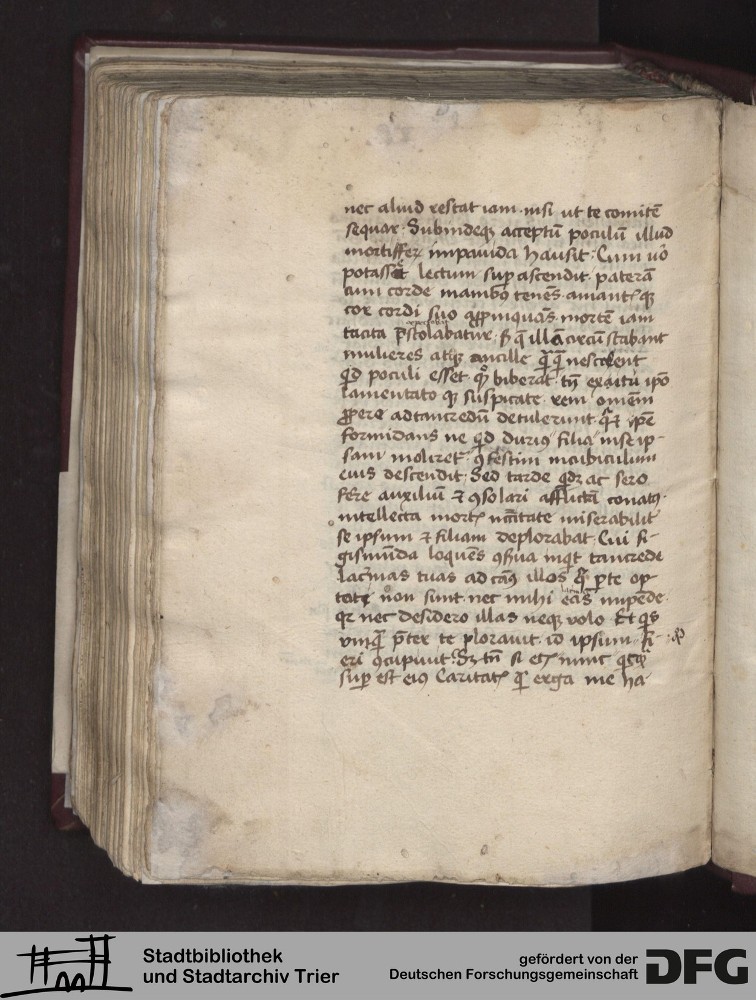 nec aliud restat iam nisi ut te comitē
sequar. Subindeqz acceptū poculū illud
mortifferz impauida hausit. Cum uo
potasset lectum sup ascendit. paterā
cum corde manibꝯ tenēs amantꝭ qz
cor cordi suo appinquās mortē iam
tacita p̄stolabatur. circūstabant
mulieres atqz ancille nescirent
qd poculi esset biberat tn̄
lamentato qz suspicate rem omēm
ꝓpere ad tancredū detulerunt. ipē
formidans ne qd duriꝯ filia in se ip-
sam moliret ꝯfestim in cubiculum
eius descendit. Sed tarde ac sero
auxiliū ⁊ ꝯsolari afflictā conatꝯ.
intellecta mortꝭ nc̄citate miserabilit
se ipsum ⁊ filiam deplorabat. Cui si-
gismūda loquēs inqt tancrede
lac̄mas tuas ad illos
non sunt. nec mihi impēde
qr nec desidero illas neqz volo. Et qs
vnqꝫ p̄ter te plorauit id ipsum fi-
eri ꝯcupiuit. Sz tn̄ si nunc
sup est eiꝯ Caritatꝭ erga me ha-
Stadtbibliothek
und Stadtarchiv Trier
gefördert von der
Deutschen Forschungsgemeinschaft
DFG